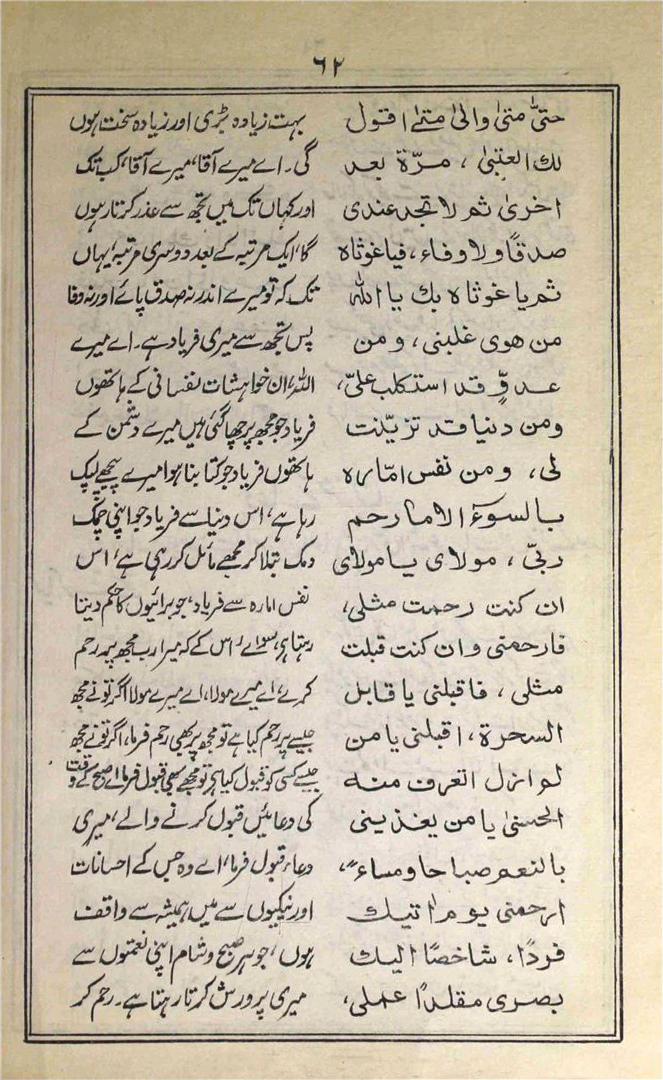 ٦٢
حتیّٰ متیٰ والیٰ متےٰ اقول
لك العتبیٰ ، مرّة بعد
اخریٰ ثم لا تجد عندی
صدقًا ولا وفاء، فیاغوثاه
ثم یا غوثا ه بك یا اللّٰه
من هوی غلبنی، ومن
عدوٍّ قد استکلب علیّ،
ومن دنیا قد تزیّنت
لی، ومن نفس امّاره
بالسوٓء الا ما رحم
ربیّ ، مولای یا مولای
ان کنت رحمت مثلی،
فارحمنی وان کنت قبلت
مثلی ، فاقبلنی یا قابل
السحرة، اقبلنی یا من
لم ازل اتعرف منه
الحسنیٰ یا من یغذینی
بالنعم صباحا ومساءً،
ارحمنی یوم اٰتیك
فردًا، شاخصًا الیك
بصری مقلدًا عملی،
بہت زیادہ بڑی اور زیادہ سخت ہوں
گی۔ اے میرے آقا، میرے آقا، کب تک
اور کہاں تک میں تجھ سے عذر کرتا رہوں
گا، ایک مرتبہ کے بعد دوسری مرتبہ، یہاں
تک کہ تو میرے اندر نہ صدق پائے اور نہ وفا
پس تجھ سے میری فریاد ہے۔ اے میرے
اللہ، ان خواہشات نفسانی کے ہاتھوں
فریاد جو مجھ پر چھا گئی ہیں میرے دشمن کے
ہاتھوں فریاد جو کتا بنا ہوا میرے پیچھے لپک
رہا ہے، اس دنیا سے فریاد جو اپنی چمک
دمک بتلا کر مجھے مائل کر رہی ہے، اس
نفس امارہ سے فریاد، جو برائیوں کا حکم دیتا
رہتا ہی، سوائے، اس کے کہ میرا رب مجھ پہ رحم
کرے، اے میرے مولا، اے میرے مولا اگر تو نے مجھ
جیسے پر رحم کیا ہے تو مجھ پر بھی رحم فرما، اگر تو نے مجھ
جیسے کسی کو قبول کیا ہی تو مجھے بھی قبول فرما اے صبح کے وقت
کی دعائیں قبول کرنے والے، میری
دعاء قبول فرما، اے وہ جس کے احسانات
اور نیکیوں سے میں ہمیشہ سے واقف
ہوں، جو ہر صبح و شام اپنی نعمتوں سے
میری پرورش کرتا رہتا ہے۔ رحم کر